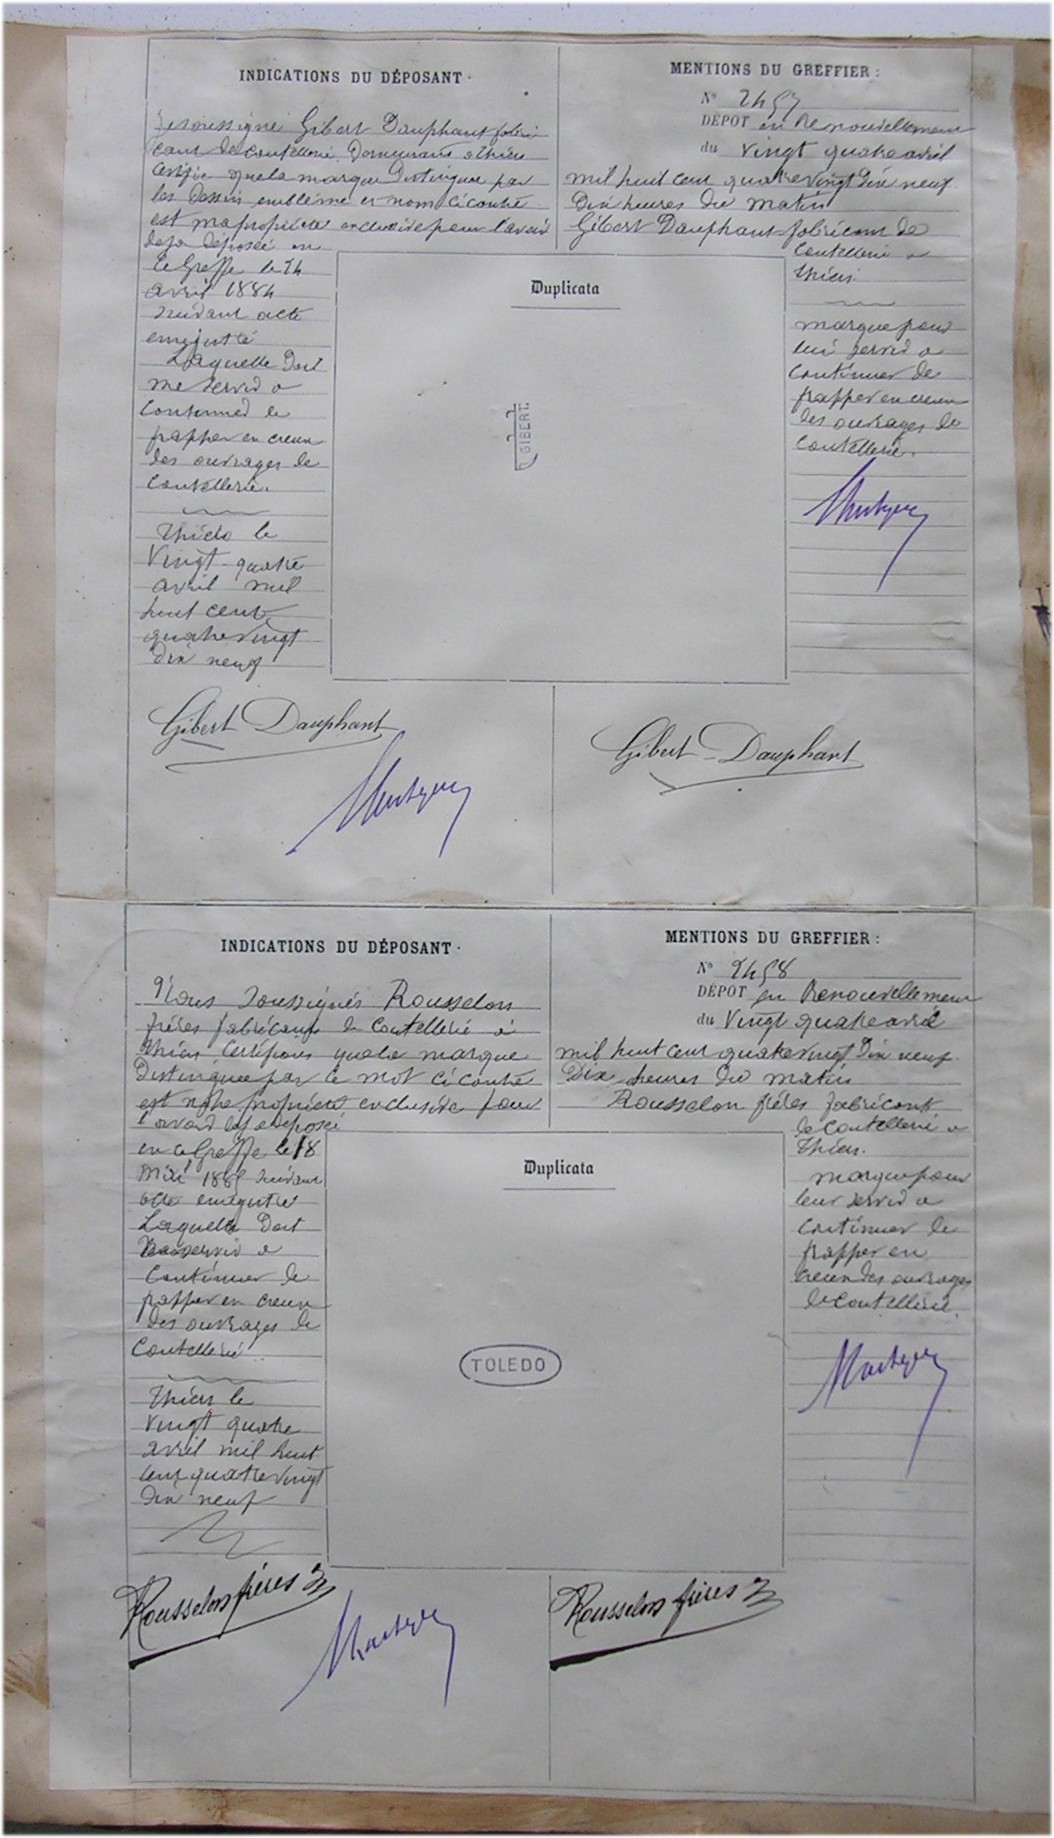 INDICATIONS DU DÉPOSANT.
Je soussigné Gibert Dauphant fabri
cant de coutellerie Demeurant a Thiers
Certifie que la marque Distinguee par
les Dessin emblème et nom ci contre
est ma propriété exclusive pour l'avoir
deja déposée en
ce Greffe le 24
avril 1884
suivant acte
enregistré
Laquelle Doit
me servir a
Continuer de
frapper en creux
des ouvrages de
Coutellerie.
Thiers le
Vingt-quatre
avril mil
huit cent
quatre vingt
Dix neuf
Gibert Dauphant
MENTIONS DU GREFFIER :
N° 2457
DÉPOT en Renouvellement
du vingt quatre avril
mil huit cent quatre vingt Dix neuf
Dix heures du matin
Gibert Dauphant fabricant de
Coutellerie a
Thiers
marque pour
lui servir a
Continuer de
frapper en creux
des ouvrages de
Coutellerie.
Duplicata
GIBERT.
Gibert Dauphant
INDICATIONS DU DÉPOSANT.
Nous Soussignés Rousselon
frères fabricants de Coutellerie à
Thiers Certifions que la marque
Distinguee par le mot ci contre
est notre propriété exclusive pour
l'avoir deja déposée
en ce Greffe le 18
Mai 1885 suivant
acte enregistré
Laquelle Doit
Nous servir a
Continuer de
frapper en creux
des ouvrages de
Coutellerie
Thiers le
Vingt quatre
avril mil huit
cent quatre vingt
Dix neuf
Rousselon frères
MENTIONS DU GREFFIER :
N° 2458
DÉPOT en Renouvellement
du Vingt quatre avril
mil huit cent quatre vingt Dix neuf
Dix heures du matin
Rousselon frères fabricants
de Coutellerie a
Thiers.
marque pour
leur servir a
Continuer de
frapper en
creux des ouvrages
de Coutellerie.
Duplicata
TOLEDO
Rousselon frères